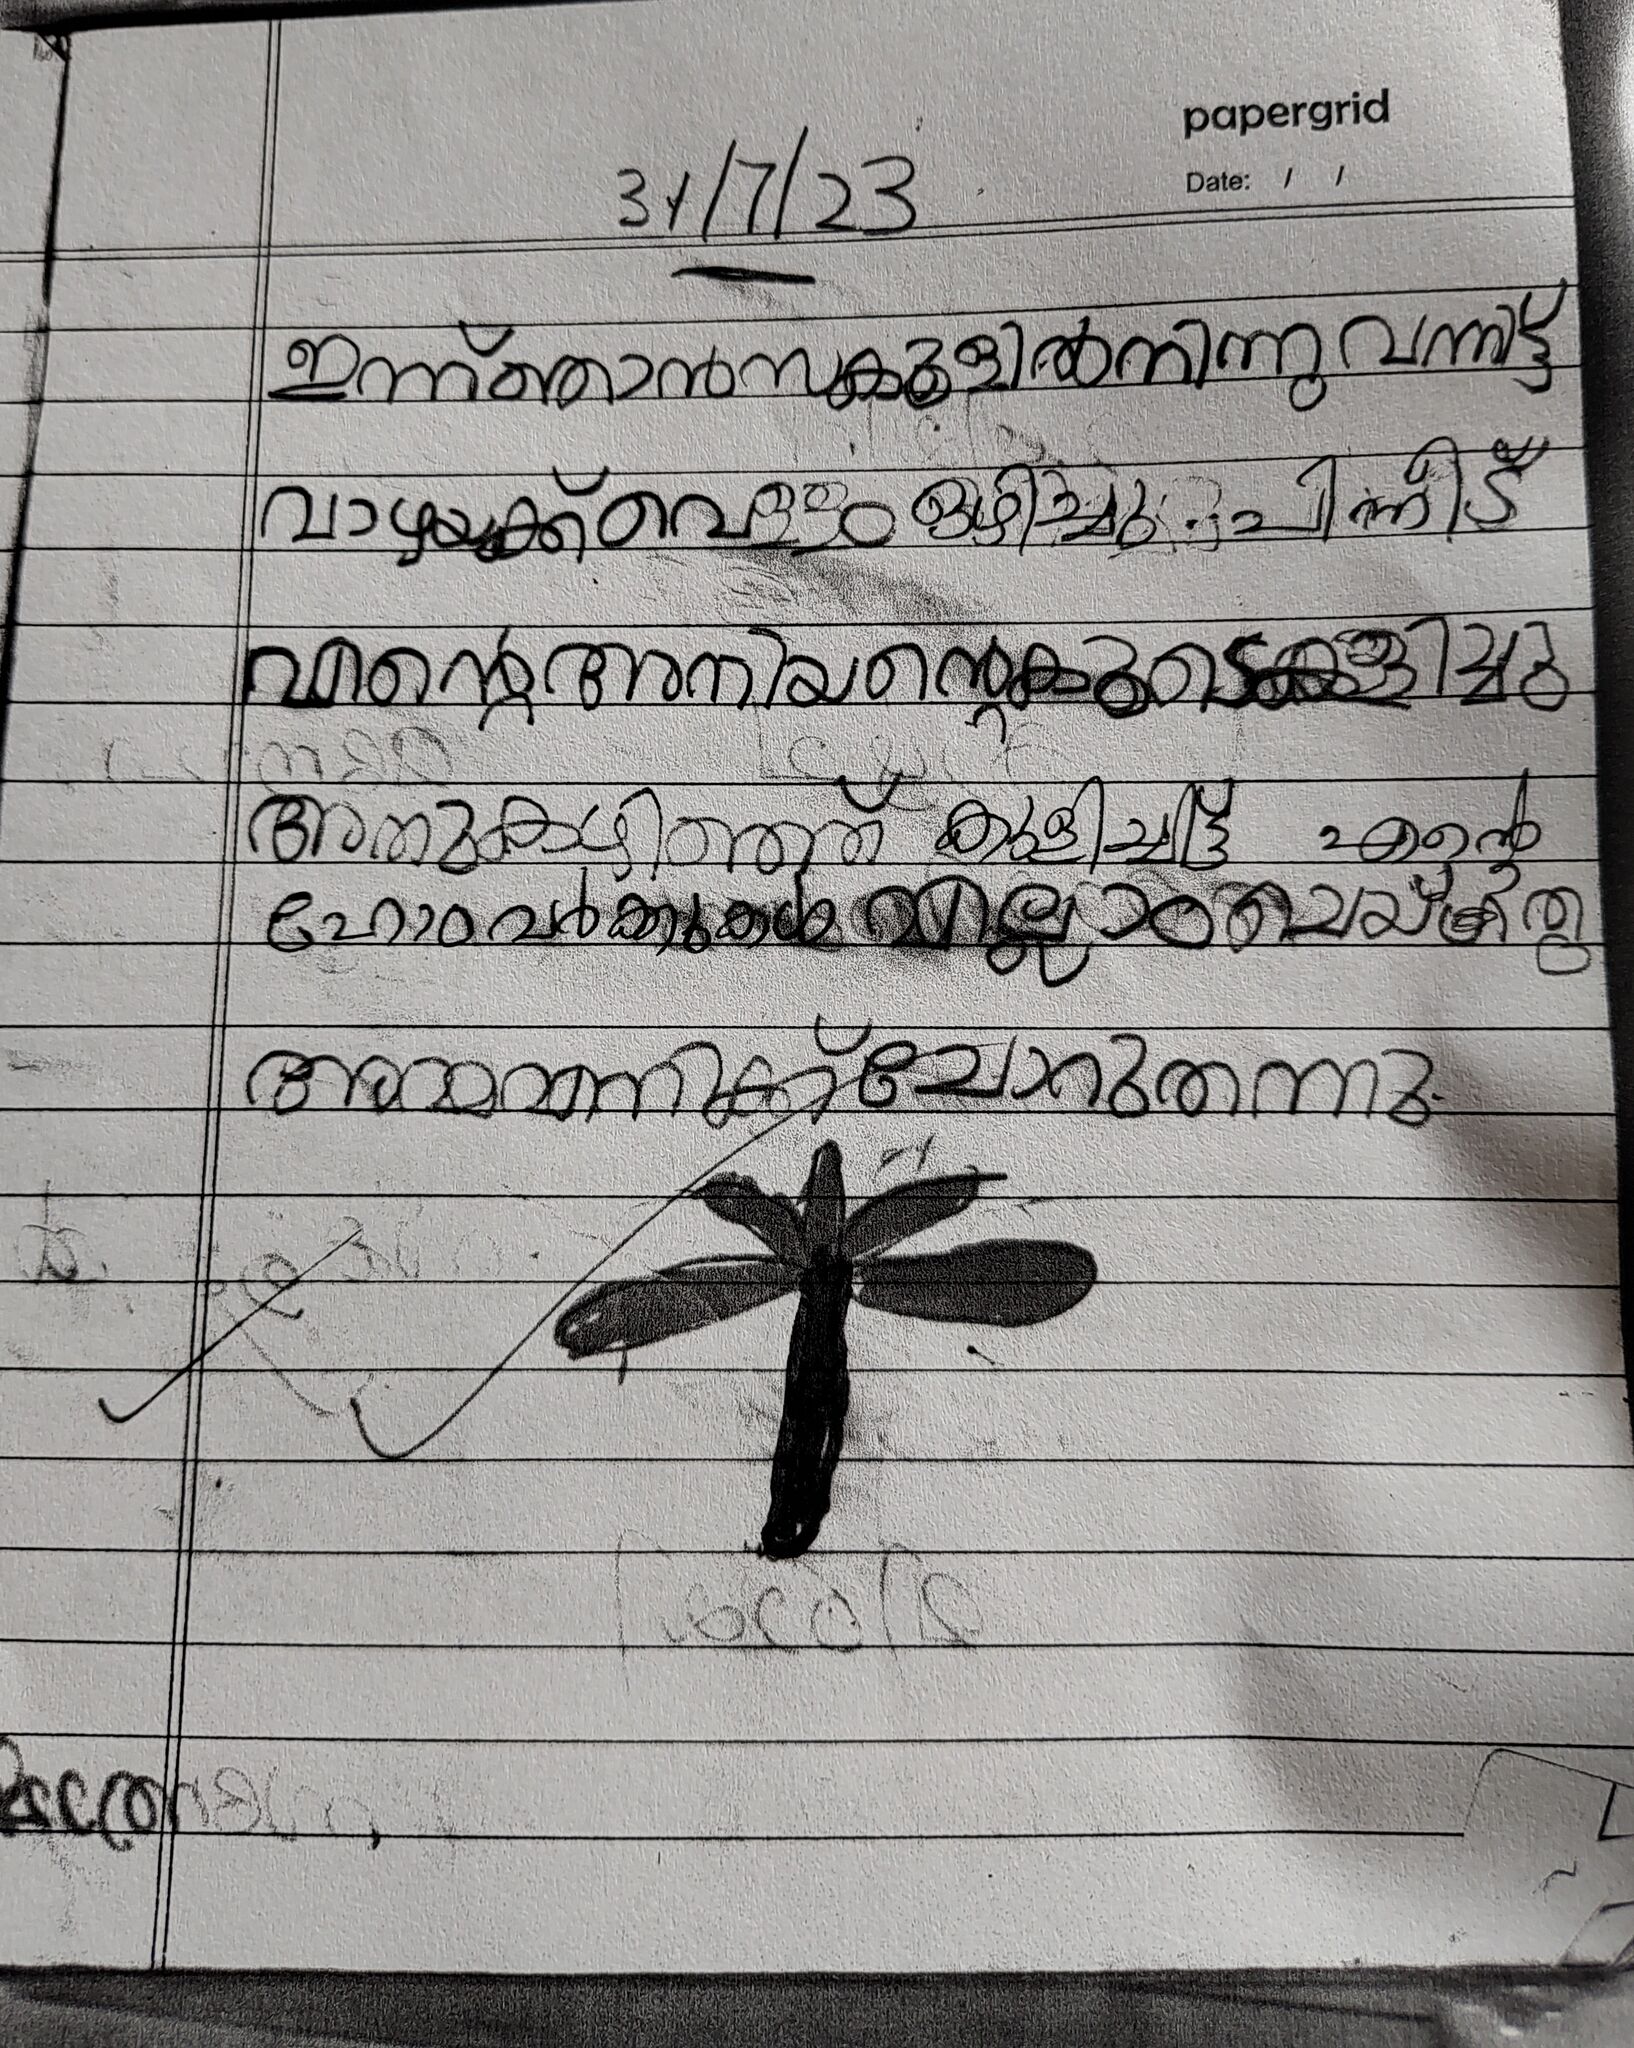 papergrid
Date: / /
31/7/23
ഇന്ന് ഞാൻ സകുളിൽ നിന്നു വന്നിട്ട്
വാഴയക്ക് വെള്ളം ഒഴിച്ചു. പിന്നീട്
എന്റെ അനിയന്റെ കുടെ കളിച്ചു
അതുകഴിഞ്ഞത് കുളിച്ചിട്ട് എൻെ
ഹോംവർക്കുകൾ എല്ലാം ചെയ്ത്
അമ്മ എനിക്ക് ചോറു തന്നു.